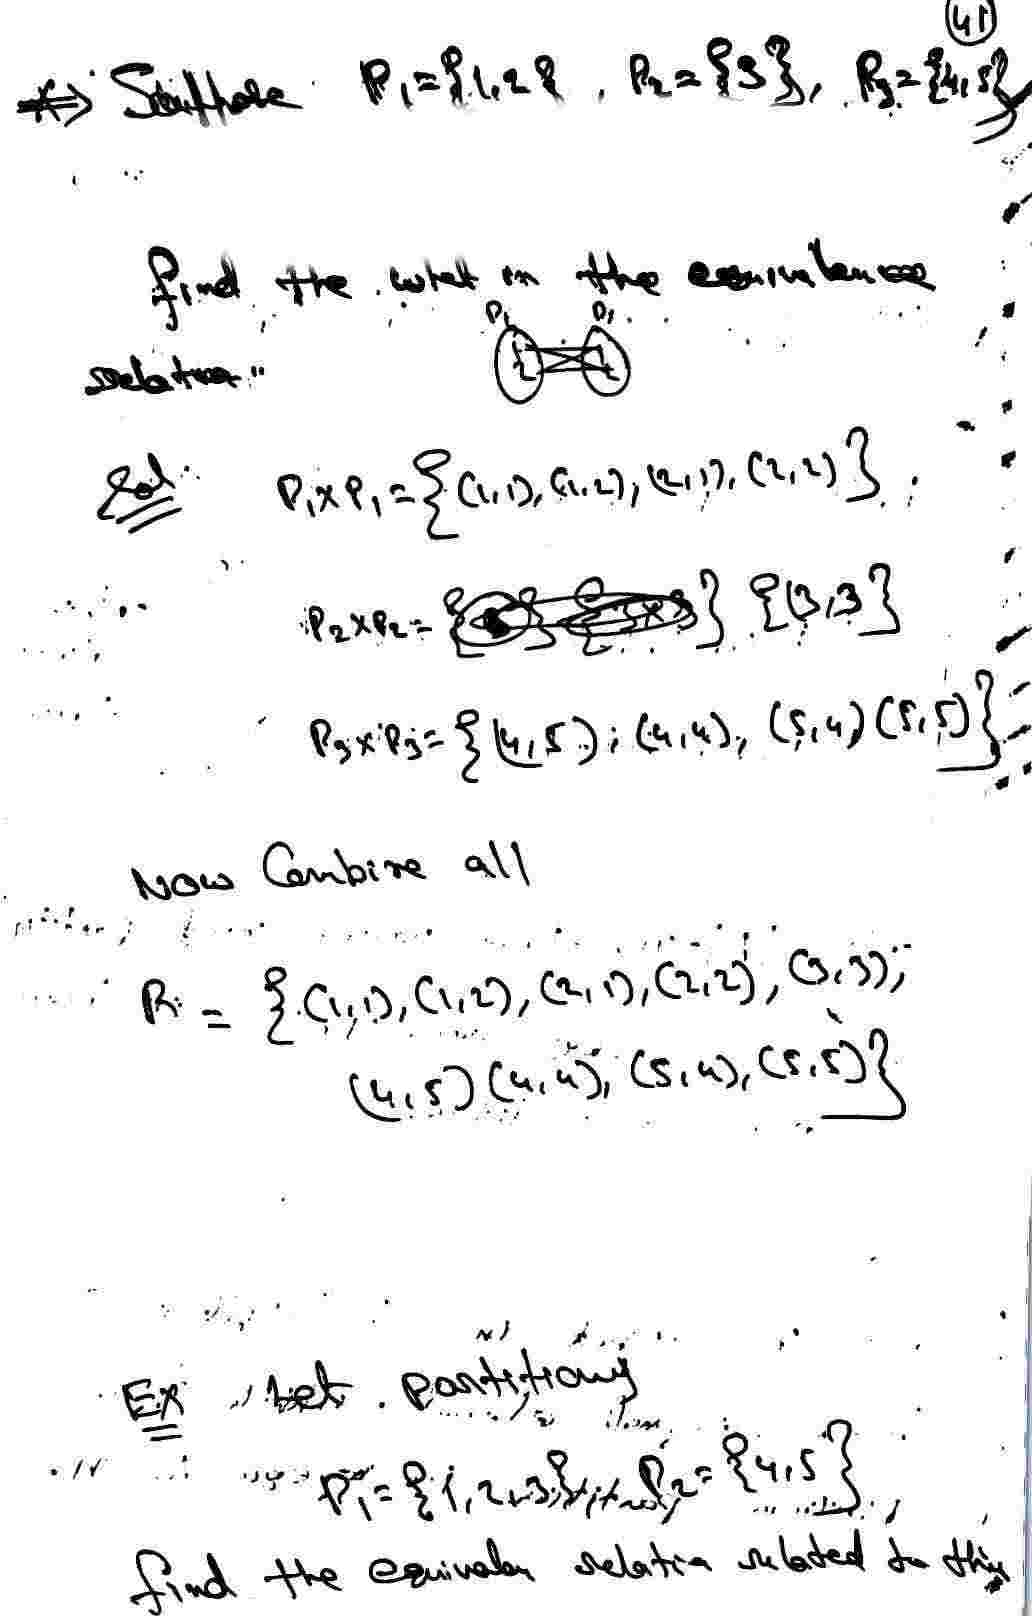 41
Suppose P₁={1,2}, P₂={3}, P₃={4,5}
find the what in the equivalence
P₁ P₁
relation"
1 1
2 2
Sol P₁×P₁={(1,1),(1,2),(2,1),(2,2)},
P₂×P₂= } {(3,3}
P₃×P₃={(4,5),(4,4),(5,4)(5,5)}
Now Combine all
R = {(1,1),(1,2),(2,1),(2,2),(3,3),
(4,5)(4,4),(5,4),(5,5)}
Ex let partitions
P₁={1,2,3}, P₂={4,5}
find the equivalen relation related to this